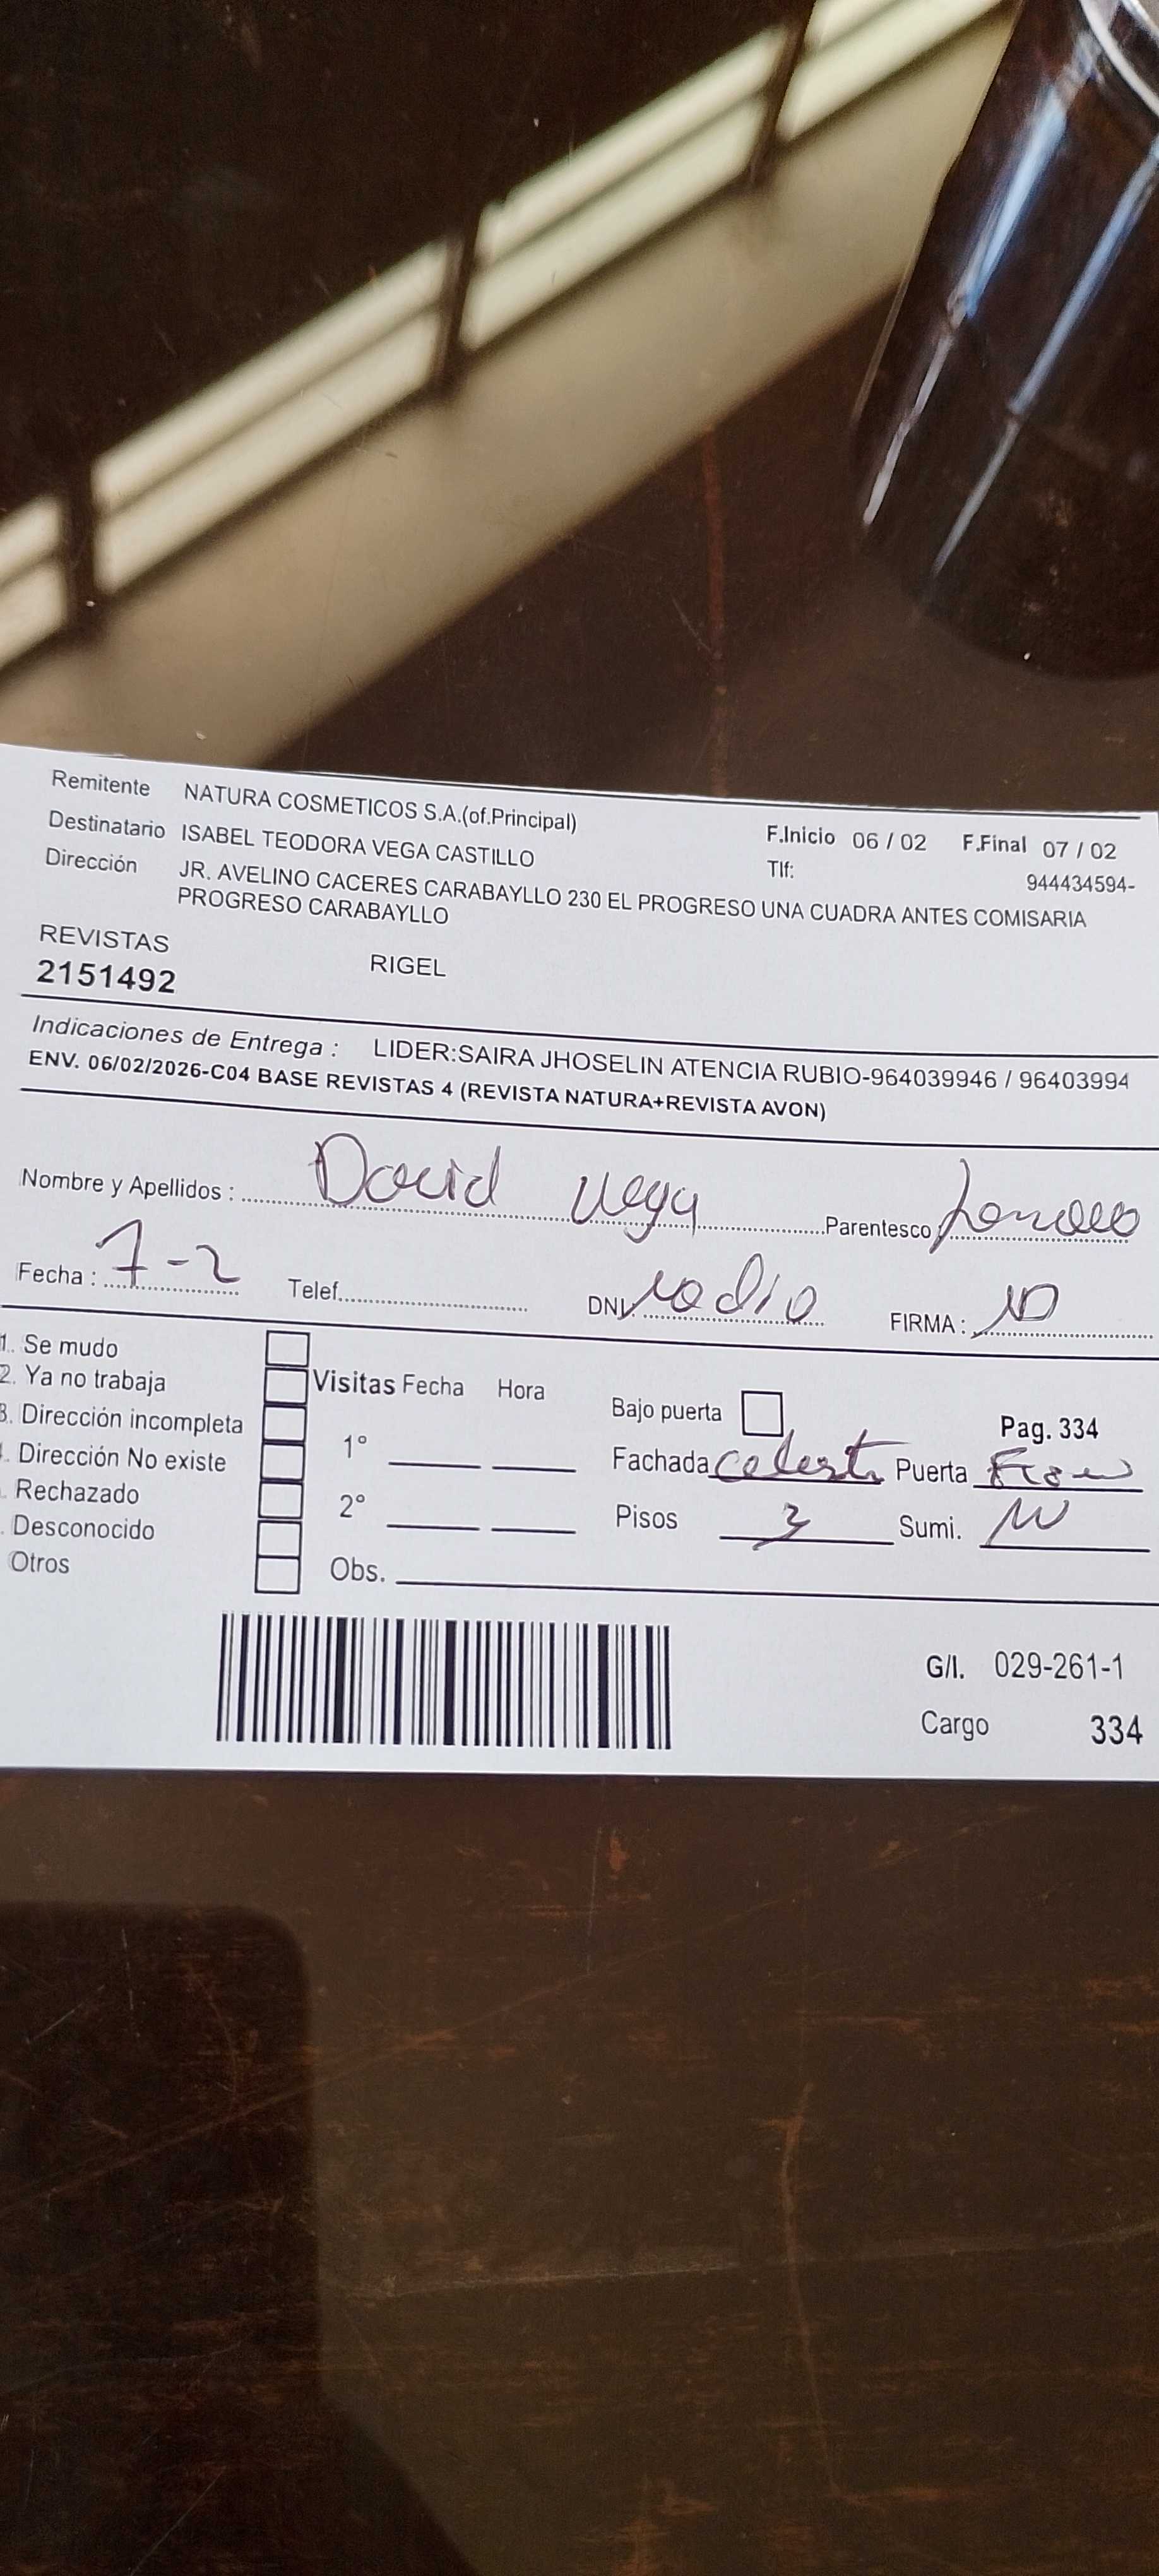 Remitente NATURA COSMETICOS S.A.(of.Principal)
F.Inicio 06 / 02 F.Final 07 / 02
Destinatario ISABEL TEODORA VEGA CASTILLO
Tlf: 944434594-
Dirección JR. AVELINO CACERES CARABAYLLO 230 EL PROGRESO UNA CUADRA ANTES COMISARIA
PROGRESO CARABAYLLO
REVISTAS
RIGEL
2151492
Indicaciones de Entrega : LIDER:SAIRA JHOSELIN ATENCIA RUBIO-964039946 / 96403994
ENV. 06/02/2026-C04 BASE REVISTAS 4 (REVISTA NATURA+REVISTA AVON)
Nombre y Apellidos : David Vega Parentesco :
Fecha : 7-2 Telef. DNI. FIRMA :
1. Se mudo
2. Ya no trabaja
3. Dirección incompleta
. Dirección No existe
. Rechazado
. Desconocido
Otros
Visitas Fecha Hora
1°
2°
Obs.
Bajo puerta Pag. 334
Fachada Celeste Puerta
Pisos 3 Sumi.
G/I. 029-261-1
Cargo 334